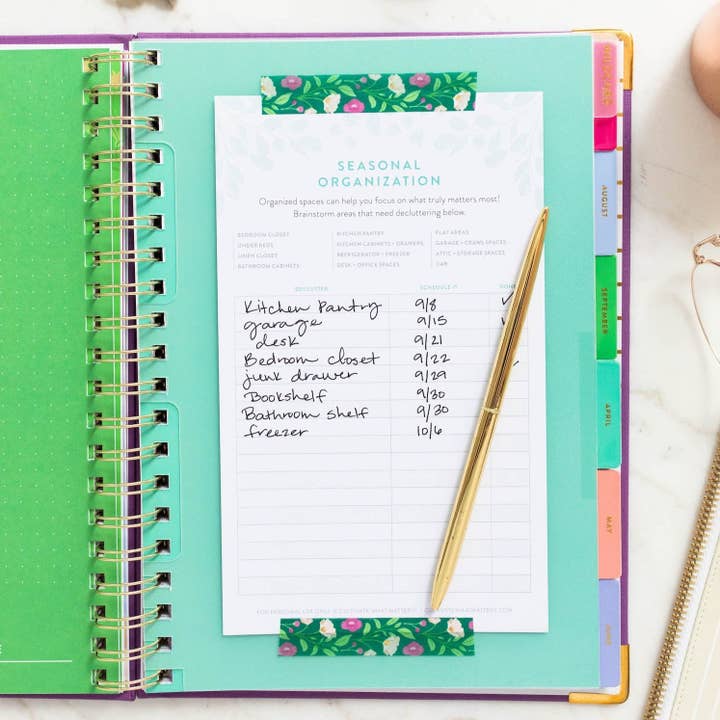 SEASONAL
ORGANIZATION
Organized spaces can help you focus on what truly matters most!
Brainstorm areas that need decluttering below.
BEDROOM CLOSET
LINEN CLOSET
BATHROOM CABINETS
KITCHEN PANTRY
KITCHEN CABINETS + DRAWERS
REFRIGERATOR + FREEZER
DESK + OFFICE SPACES
PLAY AREAS
GARAGE + LAWN SPACES
ATTIC + STORAGE SPACES
CAR
DECLUTTER SCHEDULE IT DONE
Kitchen Pantry 9/8 ✓
garage 9/15
desk 9/21
Bedroom closet 9/22
junk drawer 9/29
Bookshelf 9/30
Bathroom shelf 9/30
freezer 10/6
FOR PERSONAL USE ONLY
AUGUST
SEPTEMBER
APRIL
MAY